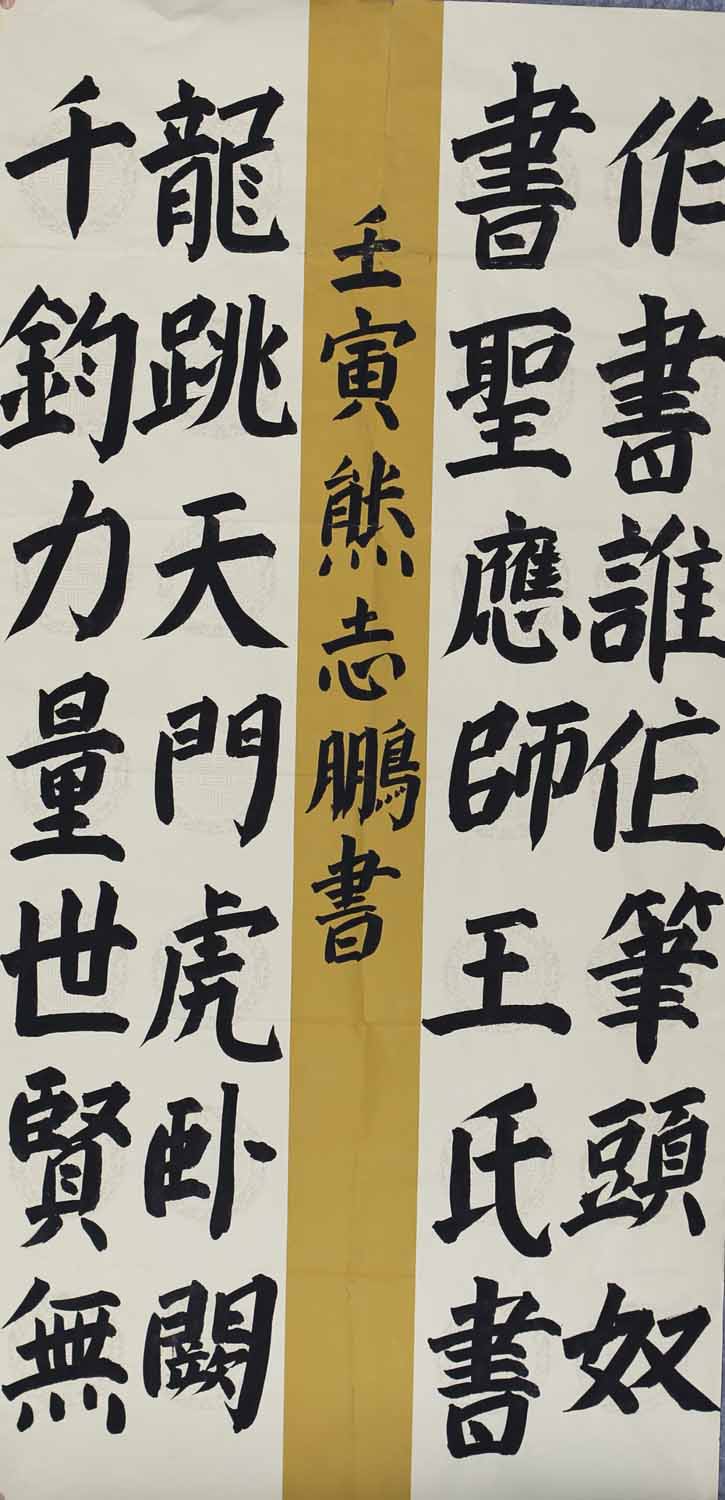 作書誰作筆頭奴
書聖應師王氏書
壬寅熊志鵬書
龍跳天門虎卧闕
千鈞力量世賢無